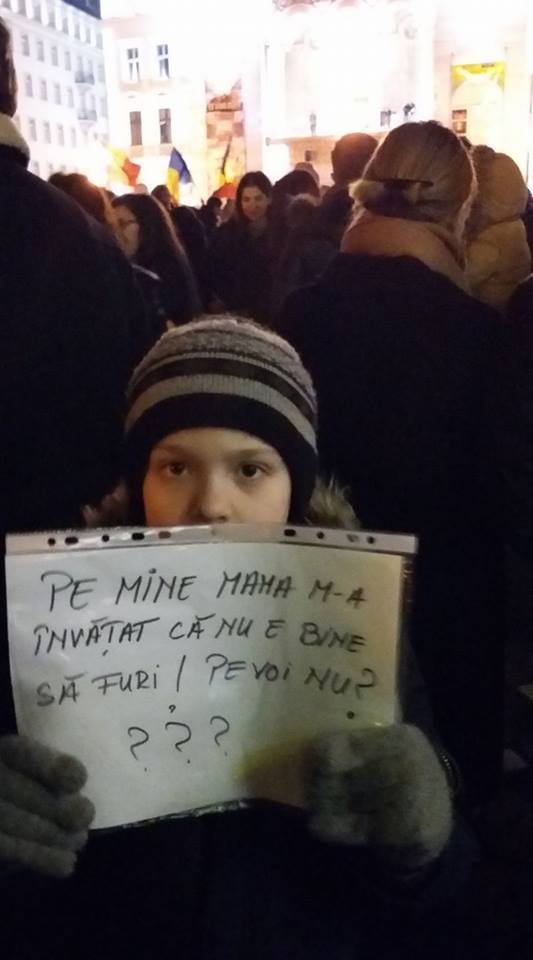 PE MINE MAMA M-A
ÎNVĂȚAT CĂ NU E BINE
SĂ FURI / PE VOI NU?
? ? ?